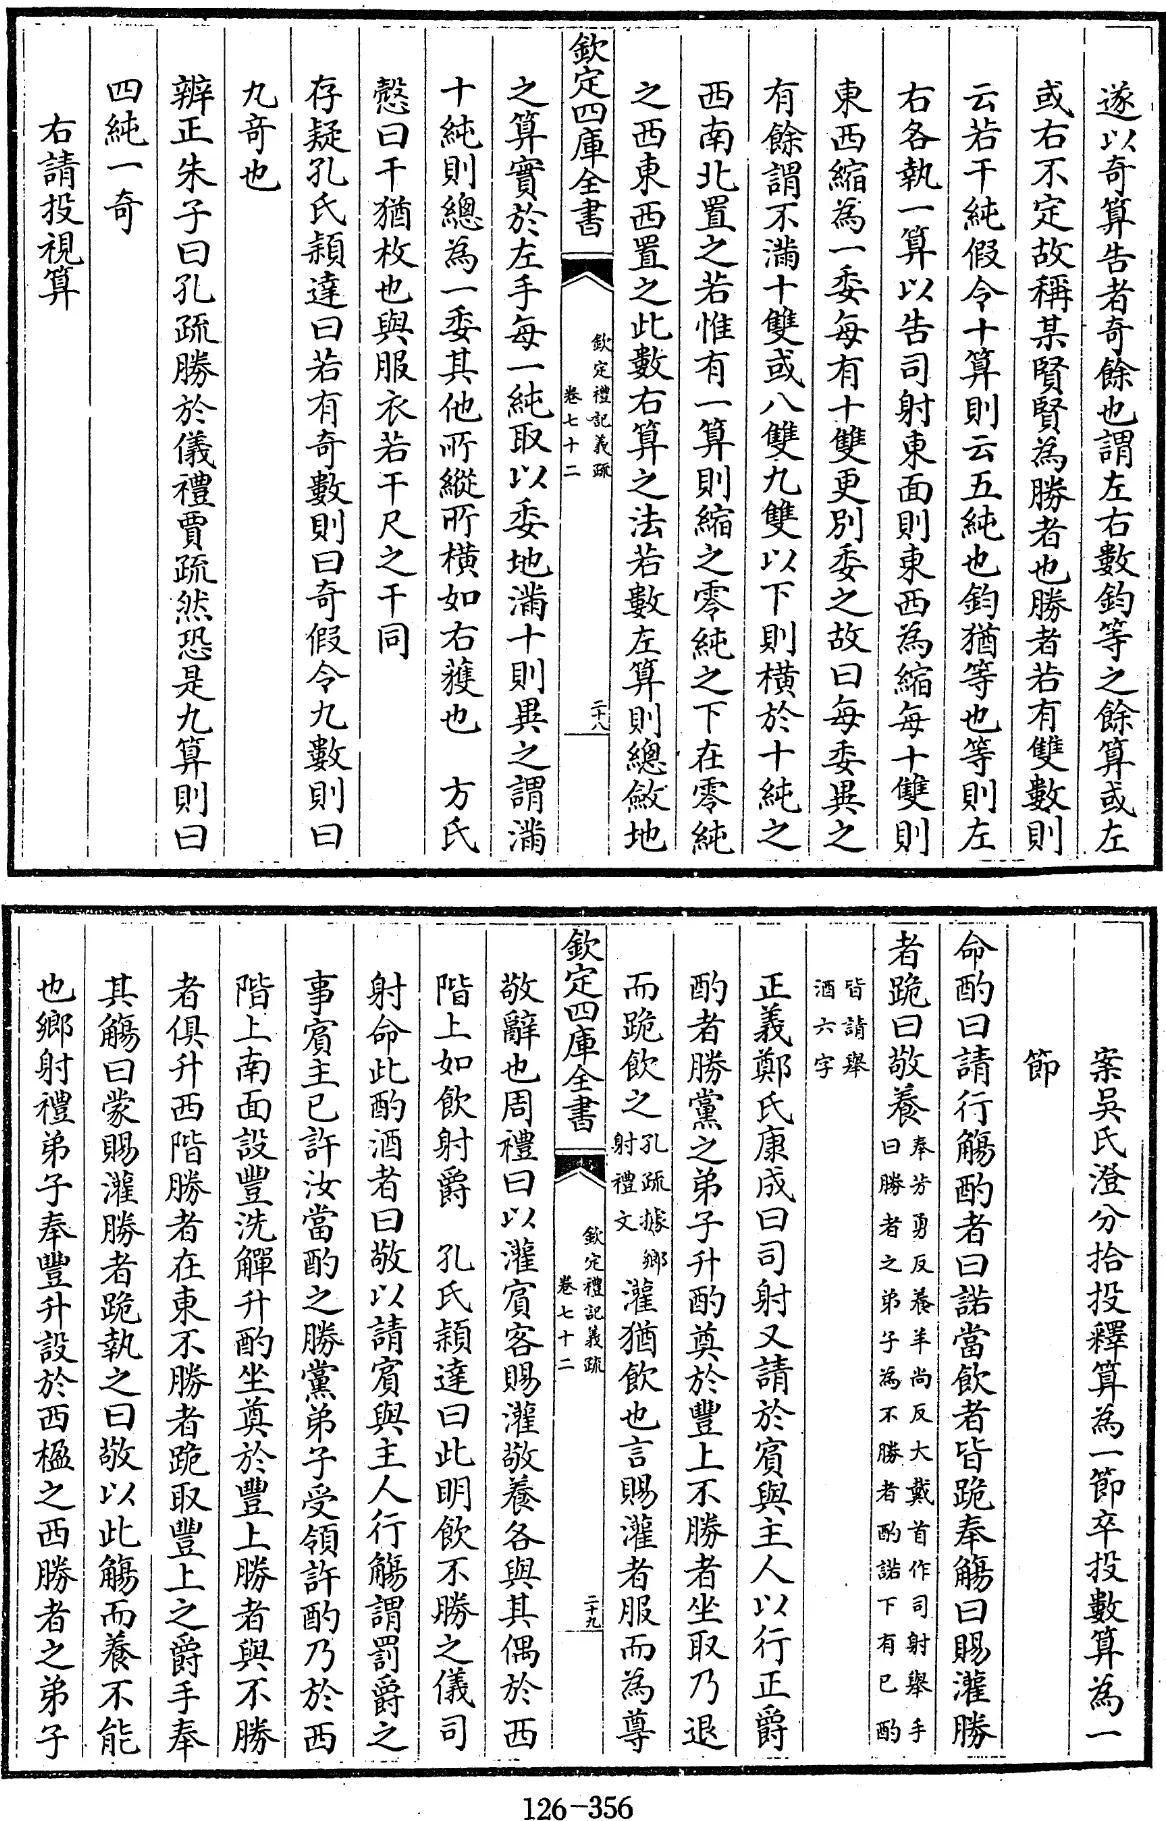 遂以奇算告者奇餘也謂左右數鈞等之餘算或左
或右不定故稱某賢賢為勝者也勝者若有雙數則
云若干純假令十算則云五純也鈞猶等也等則左
右各執一算以告司射東面則東西為縮每十雙則
東西縮為一委每有十雙更別委之故曰每委異之
有餘謂不滿十雙或八雙九雙以下則橫於十純之
西南北置之若惟有一算則縮之零純之下在零純
之西東西置之此數右算之法若數左算則總斂地
欽定四庫全書
欽定禮記義疏
卷七十二
二十八
之算實於左手每一純取以委地滿十則異之謂滿
十純則總為一委其他所縱所橫如右獲也　方氏
慤曰干猶枚也與服衣若干尺之干同
存疑孔氏穎達曰若有奇數則曰奇假令九數則曰
九奇也
辨正朱子曰孔疏勝於儀禮賈疏然恐是九算則曰
四純一奇
右請投視算
案吳氏澄分拾投釋算為一節卒投數算為一
節
命酌曰請行觴酌者曰諾當飲者皆跪奉觴曰賜灌勝
者跪曰敬養奉芳勇反養羊尚反大戴首作司射舉手
曰勝者之弟子為不勝者酌諾下有已酌
皆請舉
酒六字
正義鄭氏康成曰司射又請於賓與主人以行正爵
酌者勝黨之弟子升酌奠於豐上不勝者坐取乃退
而跪飲之孔疏據鄉射禮文灌猶飲也言賜灌者服而為尊
欽定四庫全書
欽定禮記義疏
卷七十二
二十九
敬辭也周禮曰以灌賓客賜灌敬養各與其偶於西
階上如飲射爵　孔氏穎達曰此明飲不勝之儀司
射命此酌酒者曰敬以請賓與主人行觴謂罰爵之
事賓主已許汝當酌之勝黨弟子受領許酌乃於西
階上南面設豐洗觶升酌坐奠於豐上勝者與不勝
者俱升西階勝者在東不勝者跪取豐上之爵手奉
其觴曰蒙賜灌勝者跪執之曰敬以此觴而養不能
也鄉射禮弟子奉豐升設於西楹之西勝者之弟子
126-356